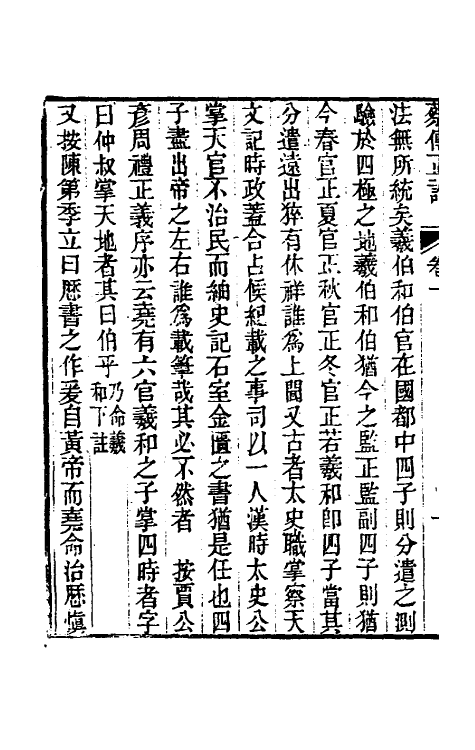 蔡傳正訛 卷一 一
法無所統矣羲伯和伯官在國都中四子則分遣之測
驗於四極之地羲伯和伯猶今之監正監副四子則猶
今春官正夏官正秋官正冬官正若羲和卽四子當其
分遣遠出猝有休祥誰爲上聞又古者太史職掌察天
文記時政蓋合占候紀載之事司以一人漢時太史公
掌天官不治民而紬史記石室金匱之書猶是任也四
子盡出帝之左右誰爲載筆哉其必不然者 按賈公
彥周禮正義序亦云堯有六官羲和之子掌四時者字
曰仲叔掌天地者其曰伯乎乃命羲和下註
又按陳第季立曰厯書之作爰自黃帝而堯命治厯愼